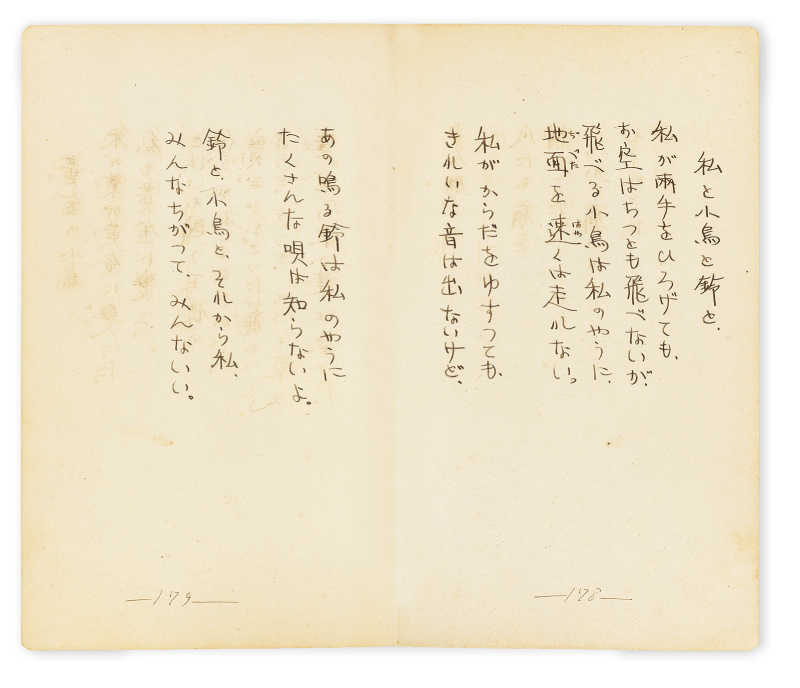 私と小鳥と鈴と、
私が両手をひろげても、
お空はちつとも飛べないが、
飛べる小鳥は私のやうに、
地面を速くは走れない。
私がからだをゆすつても、
きれいな音は出ないけど、
あの鳴る鈴は私のやうに
たくさんな唄は知らないよ。
鈴と、小鳥と、それから私、
みんなちがつて、みんないい。
―178―
―179―